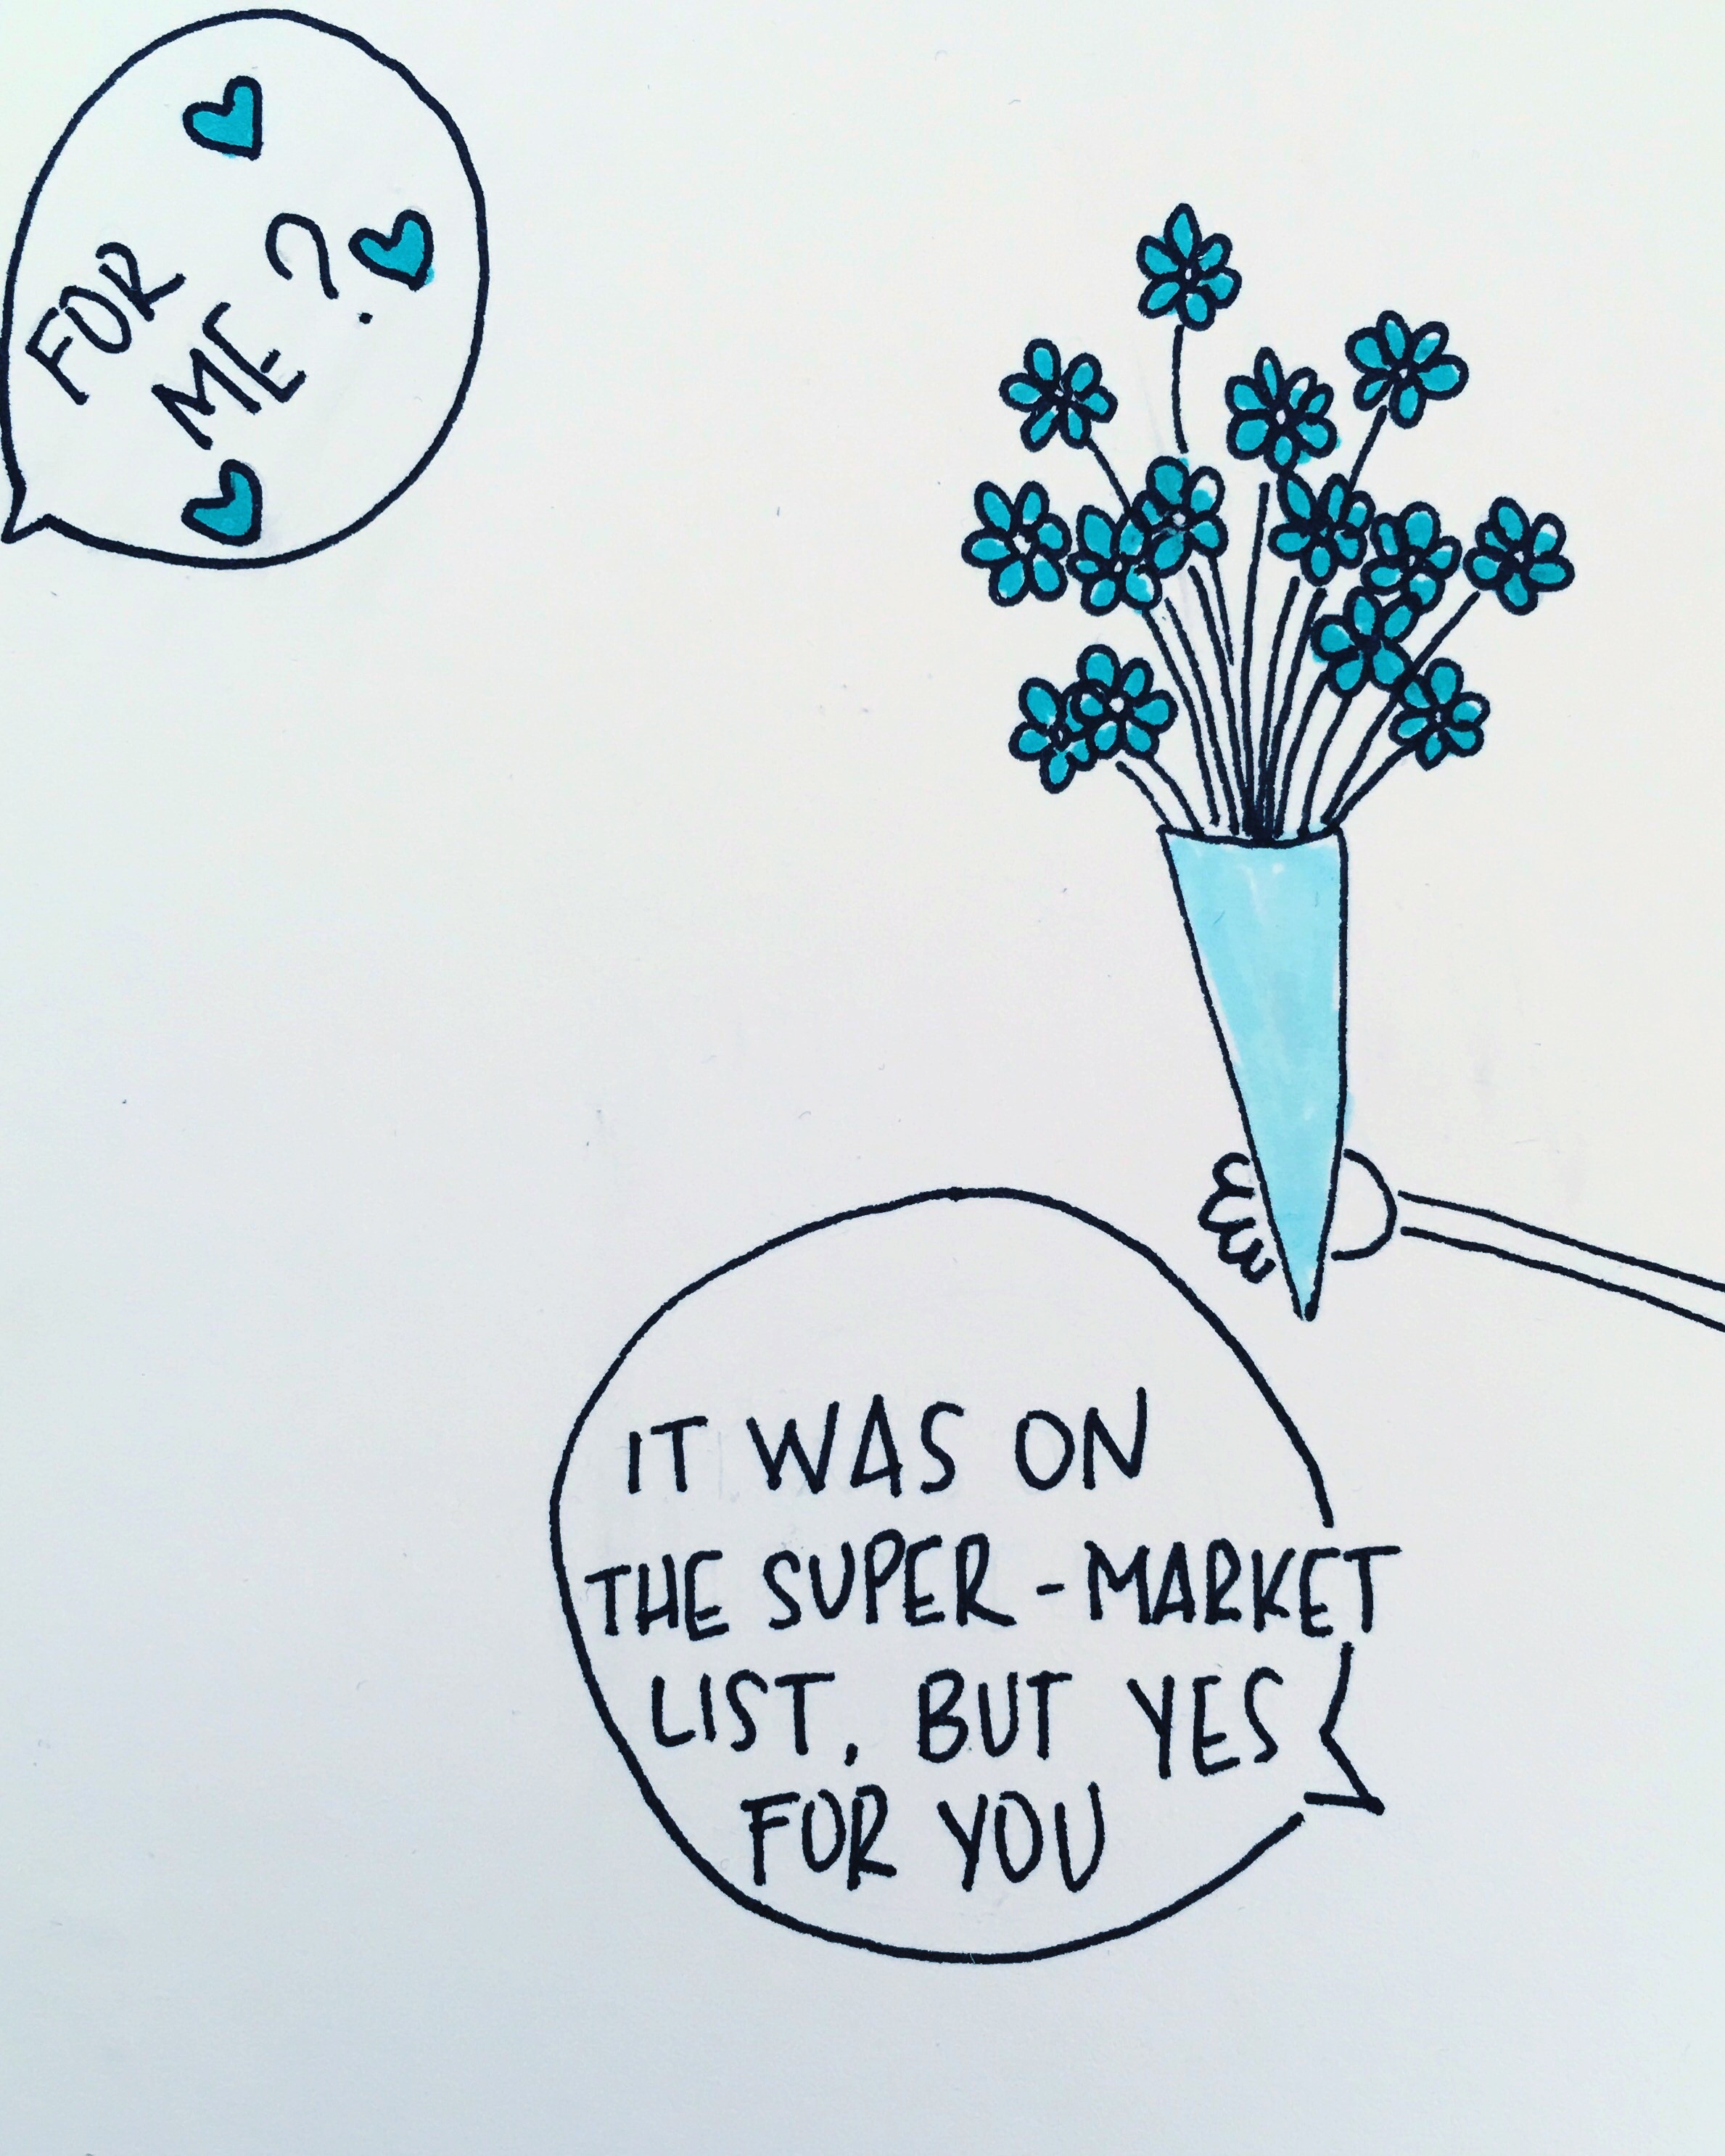 FOR
ME?
IT WAS ON
THE SUPER-MARKET
LIST, BUT YES
FOR YOU